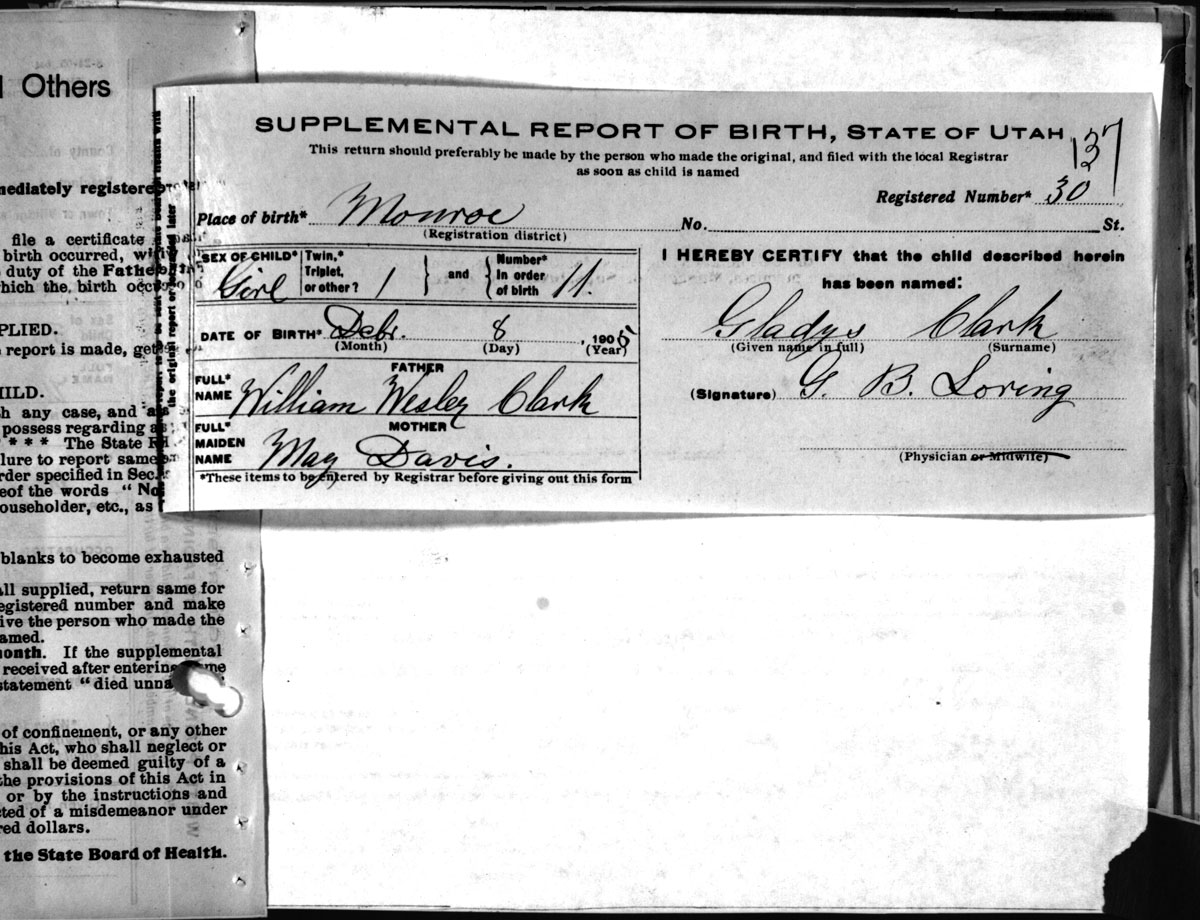 Others
SUPPLEMENTAL REPORT OF BIRTH, STATE OF UTAH
137
This return should preferably be made by the person who made the original, and filed with the local Registrar
as soon as child is named
Registered Number* 30
Place of birth* Monroe No. St.
(Registration district)
SEX OF CHILD* Girl
Twin,*
Triplet,
or other? 1
and
Number*
in order
of birth 11.
DATE OF BIRTH* 8, 1905
(Month) (Day) (Year)
FATHER
FULL*
NAME William Wesley Clark
MOTHER
FULL*
MAIDEN
NAME May Davis.
*These items to be entered by Registrar before giving out this form
I HEREBY CERTIFY that the child described herein
has been named:
Gladys Clark
(Given name in full) (Surname)
(Signature) G. B. Loring
(Physician or Midwife)
mediately registere
file a certificate
birth occurred,
duty of the Fathe
hich the birth
PPLIED.
report is made,
HILD.
h any case, and
possess regarding
* * * The State
lure to report same
rder specified in Sec.
eof the words "No
ouseholder, etc., as
blanks to become exhausted
all supplied, return same for
egistered number and make
ive the person who made the
amed.
month. If the supplemental
received after entering
statement "died
of confinement, or any other
his Act, who shall neglect or
shall be deemed guilty of a
the provisions of this Act in
or by the instructions and
cted of a misdemeanor under
red dollars.
the State Board of Health.
the original report or
later